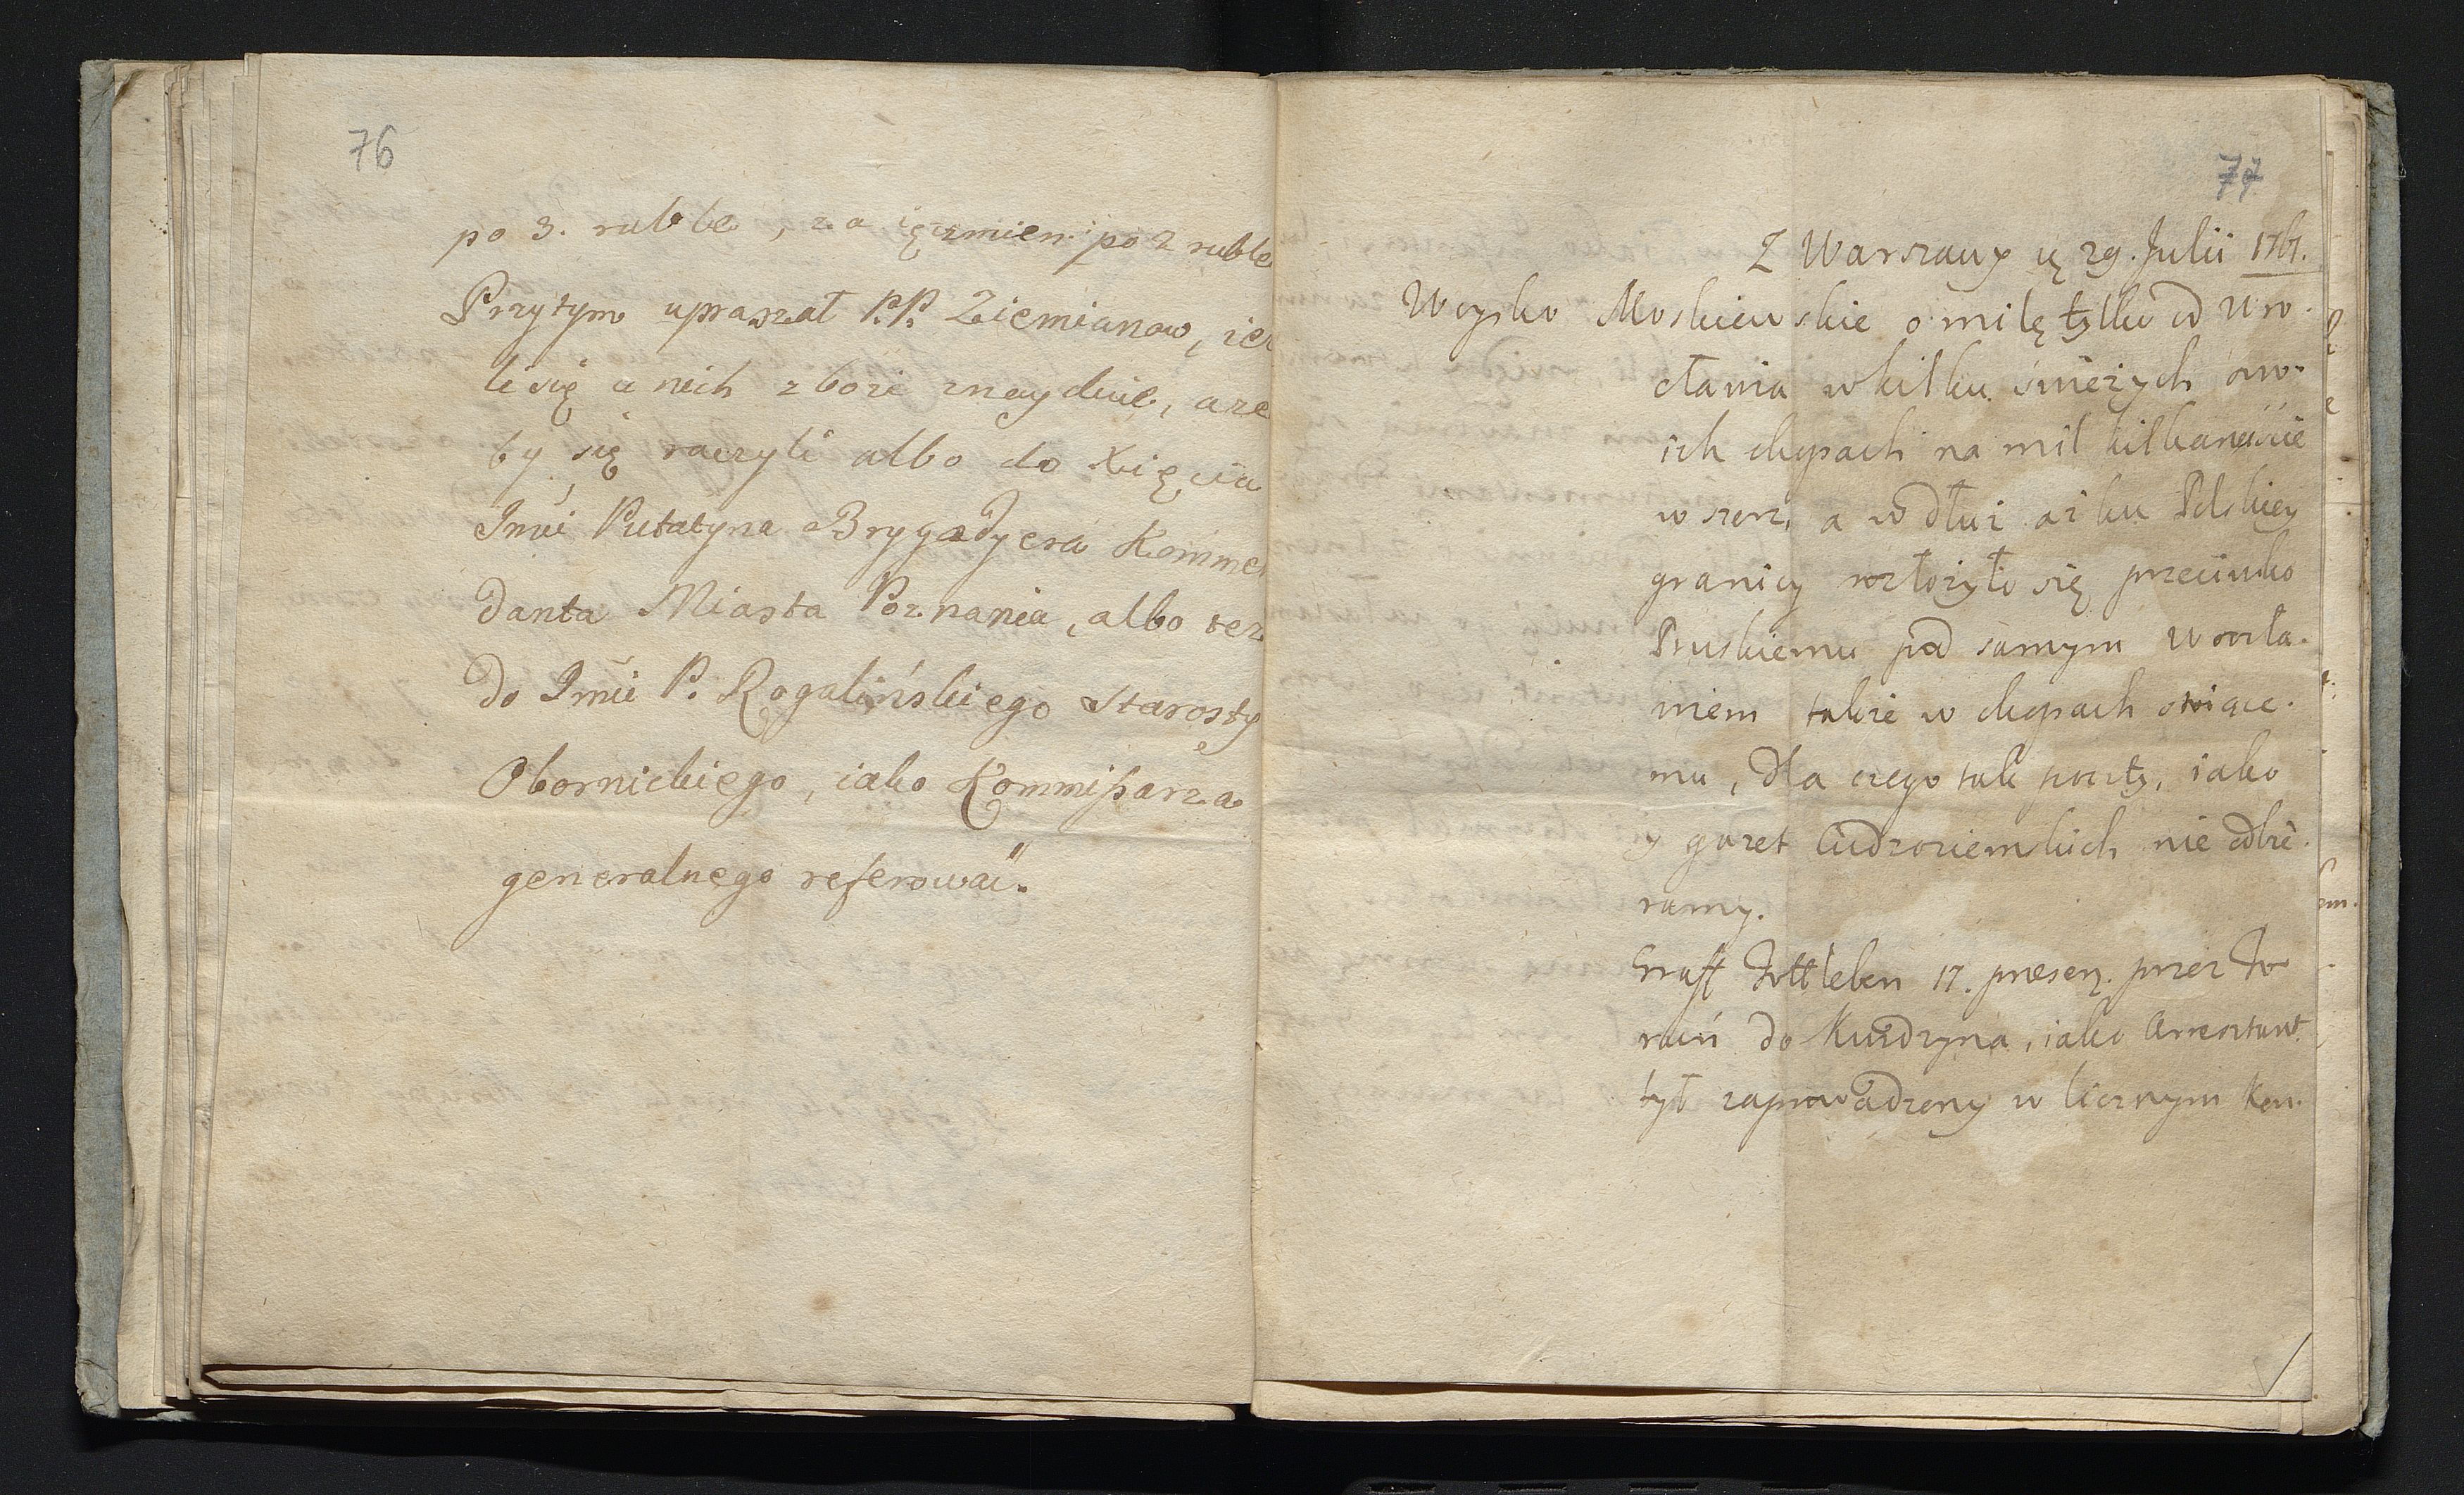 76
po 3. ruble, za ięczmien po 2 ruble
Przytym upraszał P.P. Ziemianow, ież
li się u nich zboże znayduie, aże
by się raczyli albo do Xięcia
Imći Putatyna Brygadyera Kommen
danta Miasta Poznania, albo tez
do Imći P. Rogalińskiego Starosty
Obornickiego, iako Kommißarza
generalnego referować.
77
Z Warszawy 29. Julii 1761.
Woysko Moskiewskie o milę tylko od Wro-
cławia w kilku świeżych
ich na mil kilkanaście
w szerz, a w dłuż aż ku Polskiey
granicy rozłożyło się przeciwko
Pruskiemu pod samym Wrocła-
wiem także w stoiące-
mu, Dla czego tak poczty, iako
y gazet Cudzoziemskich nie odbie-
ramy.
Graff Tottleben 17. praesen. przez To
ruń do Kuzdryna, iako Arrestant
był zaprowadzony w licznym Kon-